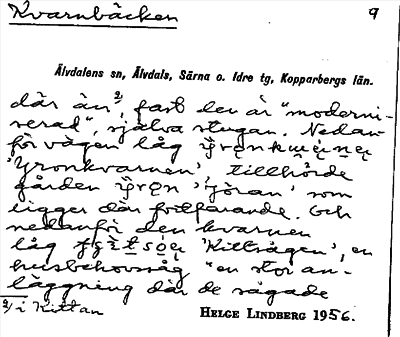 Kvarnbäcken 9
Älvdalens sn, Älvdals, Särna o. Idre tg, Kopparbergs län.
där än²⁾, fast den är "moderni-
serad", själva stugan. Nedan-
för vägen låg
'Yronkvarnen', tillhörde
gården 'Yöran' som
ligger där fortfarande. Och
nedanför den kvarnen
låg 'Kittsågen', en
husbehovssåg "en stor an-
läggning där de sågade
2/ i Kittan
HELGE LINDBERG 1956.